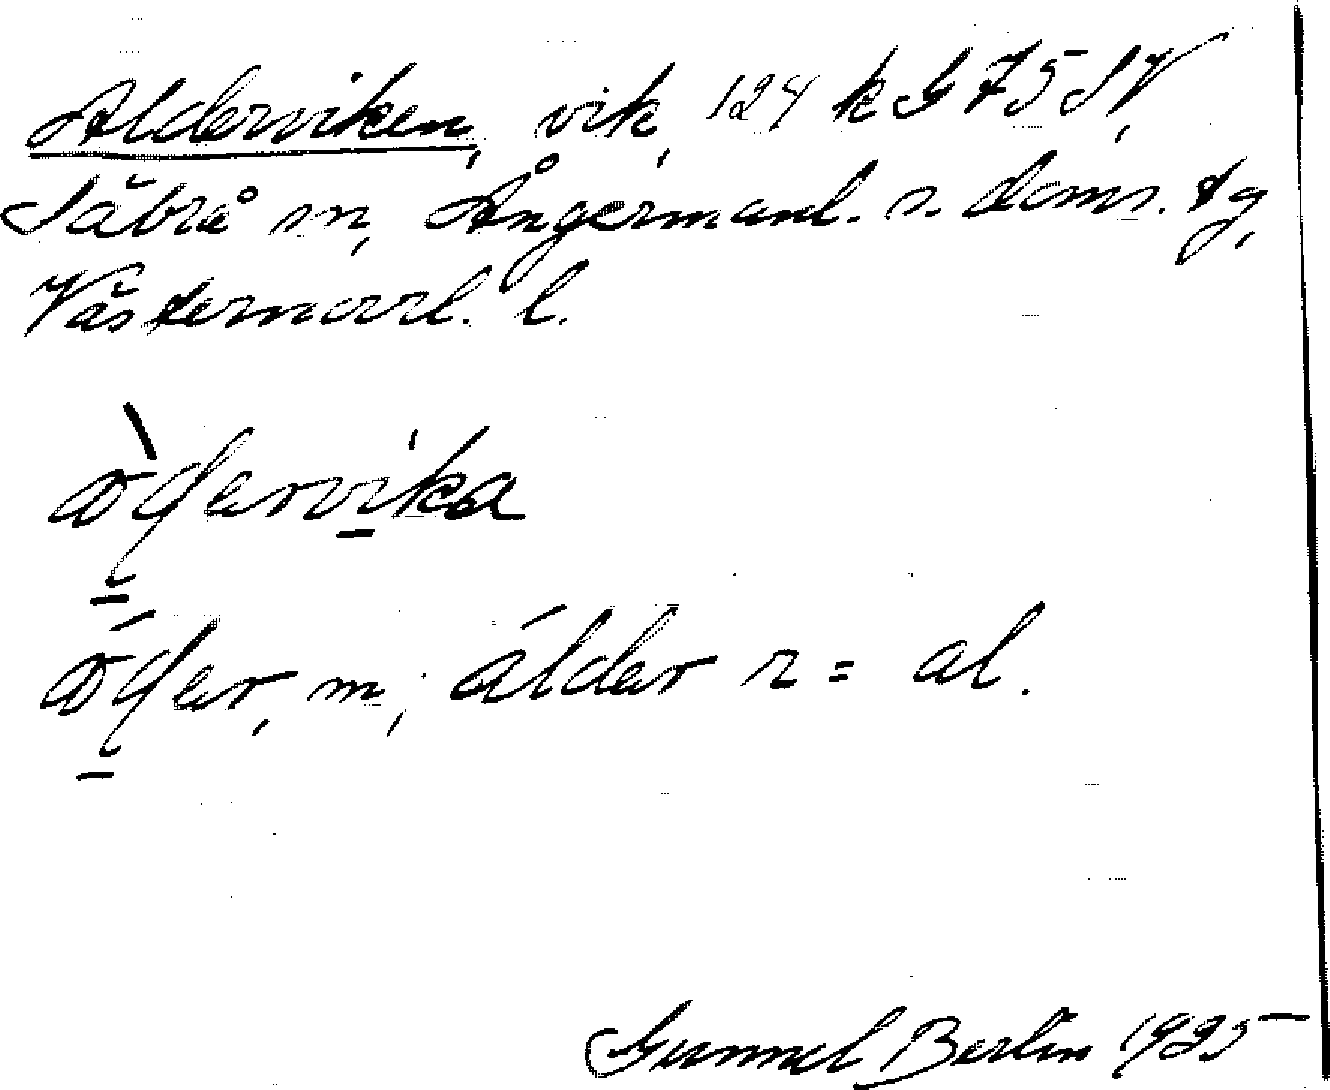 Alderviken, vik, 124 k G 75 SV,
Säbrå sn, Ångermanl. s. doms. tg,
Västernorrl. l.
àldervika
álder, m, álder r = al.
Gunnel Berlin 1935